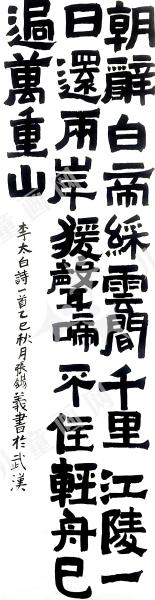 朝辭白帝綵雲間千里江陵一
日還兩岸猨聲啼不住輕舟已
過萬重山
李太白詩一首乙巳秋月張錫義書於武漢